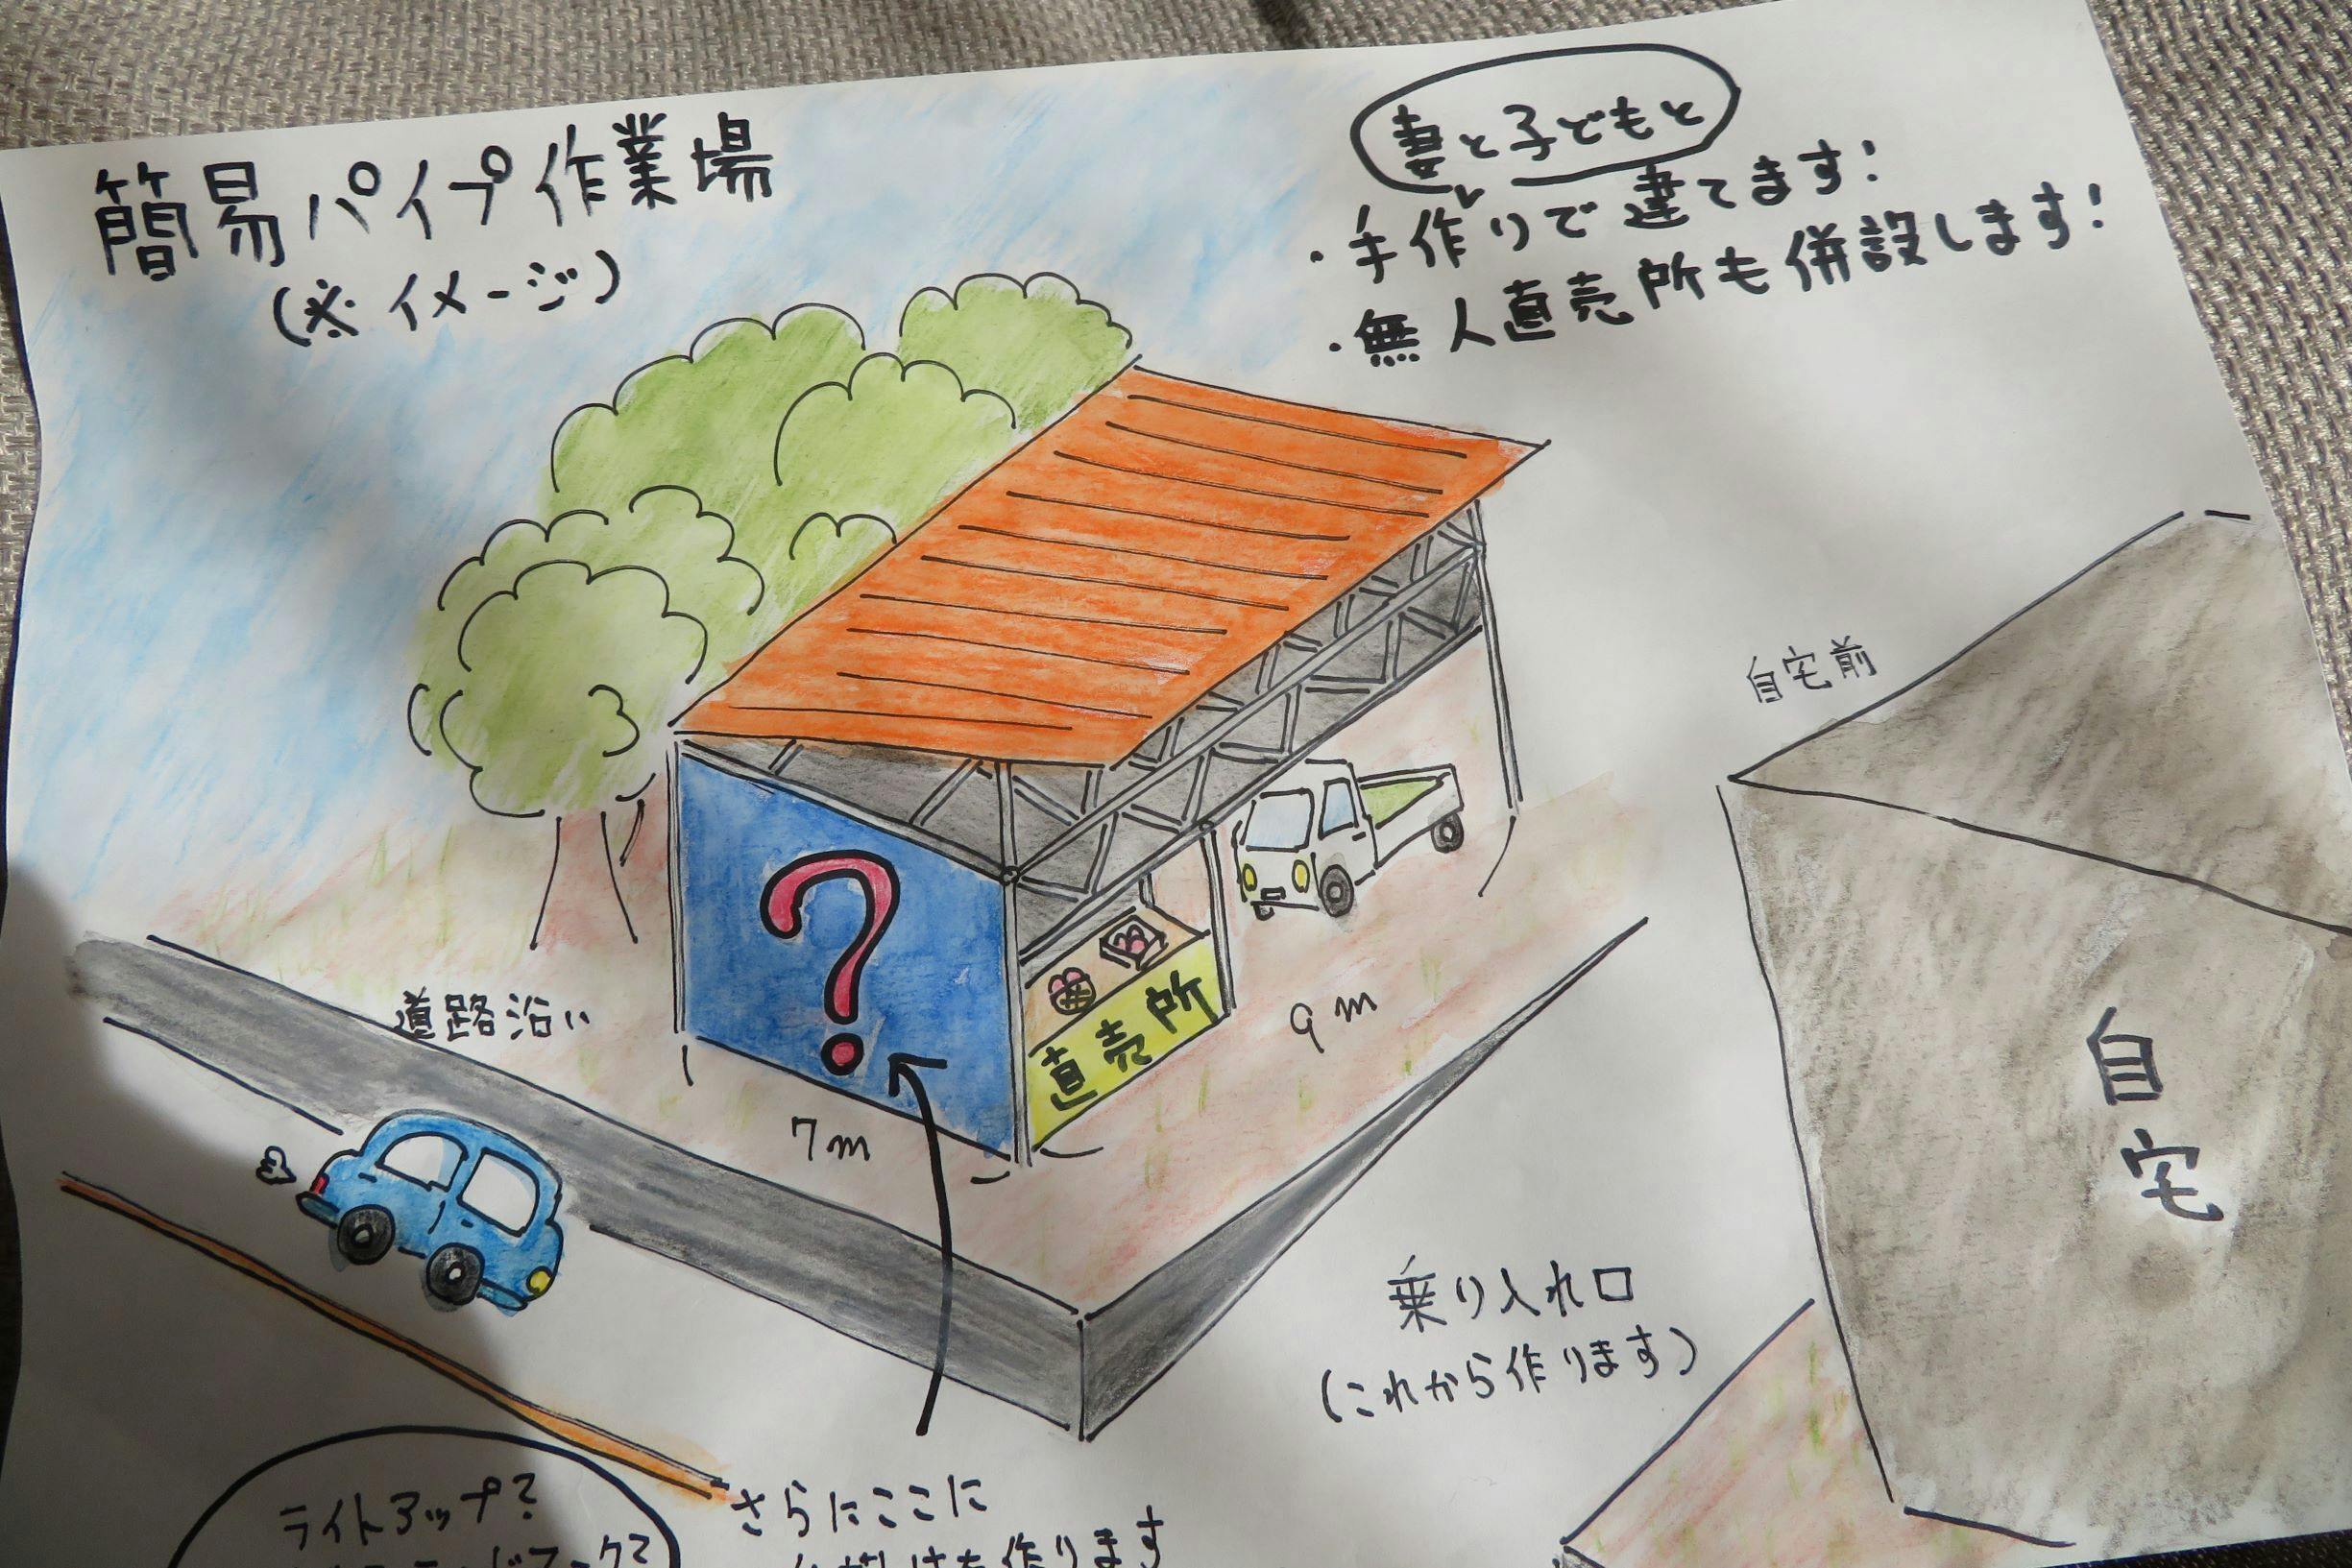 簡易パイプ作業場
(※イメージ)
妻と子どもと
・手作りで建てます!
・無人直売所も併設します!
自宅前
道路沿い
?
直売所
7m
9m
自宅
乗り入れ口
(これから作ります)
ライトアップ?
さらにここに
作ります